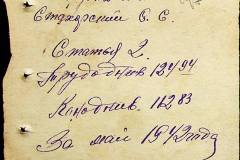 Стахорский С. С.
Статья 2.
Трудодней 124 94
Конодней. 112,83
За май 1942 года